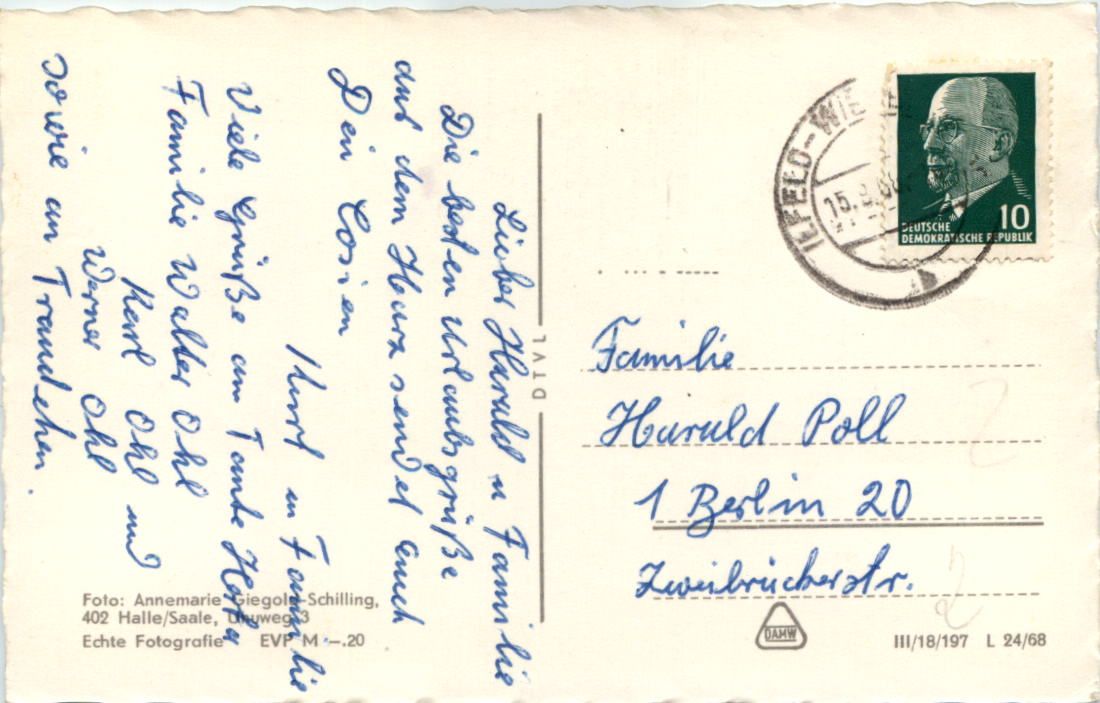 Lieber Harald u Familie
Die besten Urlaubsgrüße
aus dem Harz sendet euch
Dein Cosien
Kurt u Familie
Viele Grüße an Tante Herta
Familie Walter Ohl
Karl Ohl und
Werner Ohl
sowie an Traudchen.
Foto: Annemarie Giegold-Schilling,
402 Halle/Saale, 3
Echte Fotografie EVP M -.20
DTVL
ILFELD-WIE
15.8.68
10
DEUTSCHE
DEMOKRATISCHE REPUBLIK
Familie
Harald Poll
1 Berlin 20
Zweibrückerstr.
DAMW
III/18/197 L 24/68